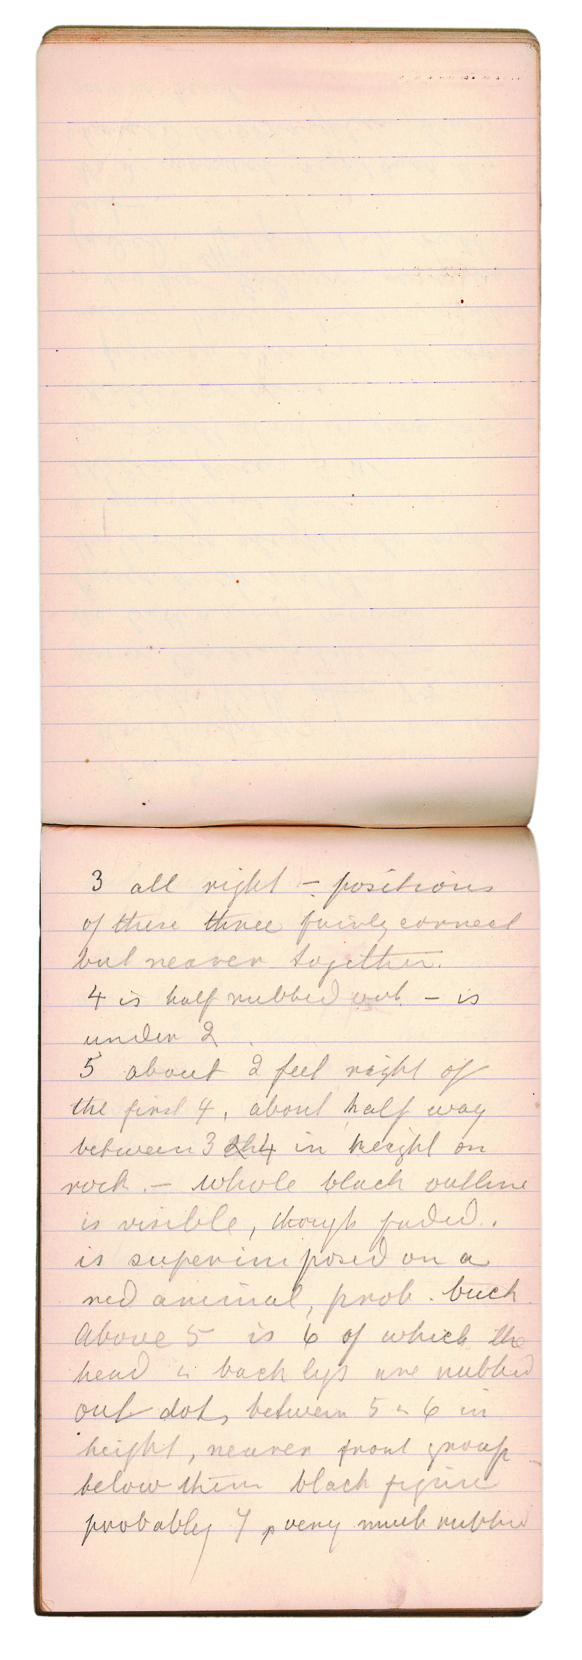 3 all right – positions
of these three fairly correct
but nearer together.
4 is half rubbed out – is
under 2
5 about 2 feet right of
the first 4, about half way
between 3 & 4 in height on
rock. – whole black outline
is visible, though faded.
is superimposed on a
red animal, prob. buck
Above 5 is 6 of which the
head & back legs are rubbed
out dots between 5 & 6 in
height, nearer front group
below them black figure
probably 7, very much rubbed